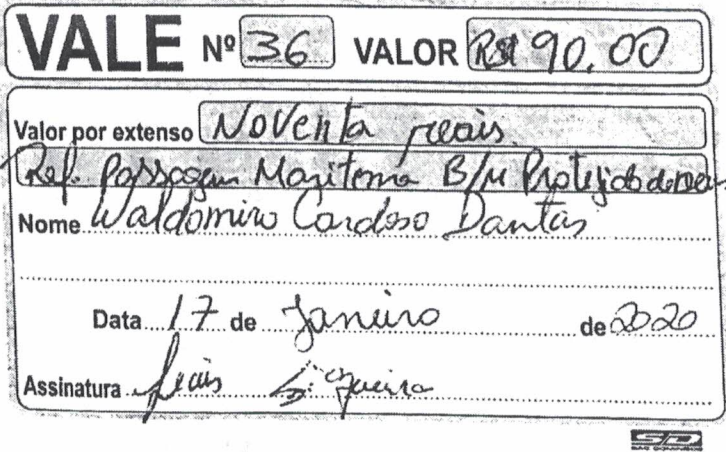 VALE Nº 36 VALOR R$ 90,00
Valor por extenso Noventa reais
Ref. Passagem Maritema B/M Protejido de Deus
Nome Waldomiro Cardoso Dantas
Data 17 de Janeiro de 2020
Assinatura
SD
SÃO DOMINGOS